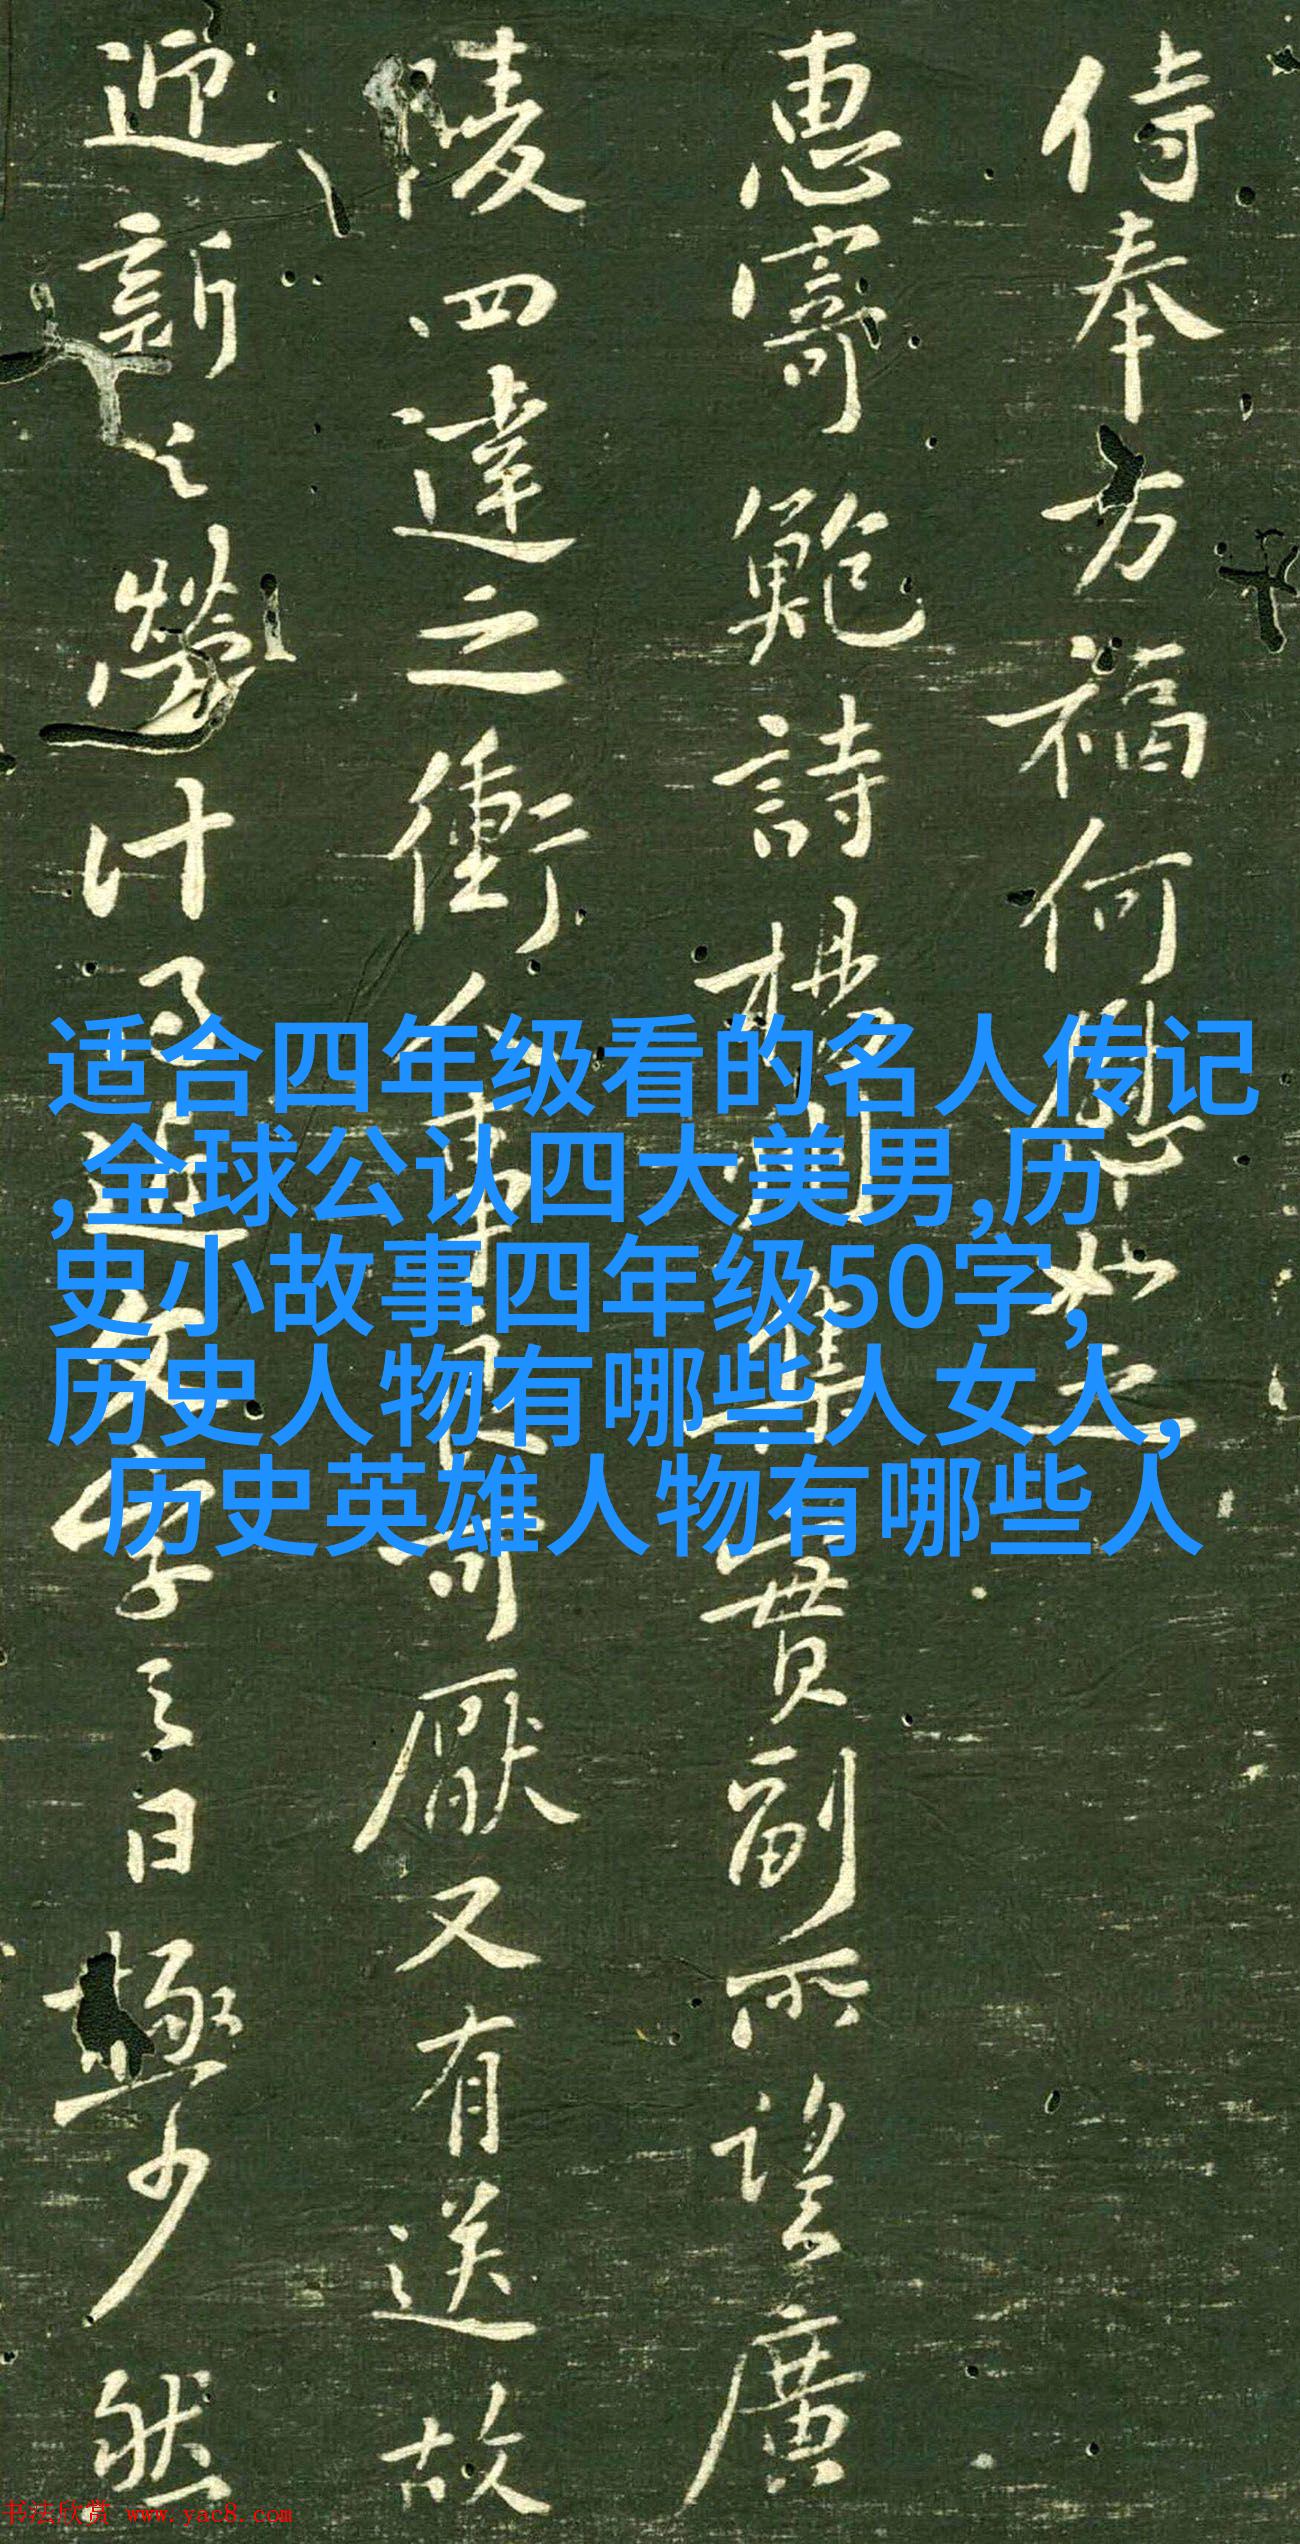 侍奉方福何慰如之
惠寄鲍詩楊州集實副所望廣
陵四達之衝人事良可厭又有送故
迎新之勞計
文字之日極少然
适合四年级看的名人传记
,全球公认四大美男,历
史小故事四年级50字,
历史人物有哪些人女人,
历史英雄人物有哪些人
书法欣赏 www.yac8.com